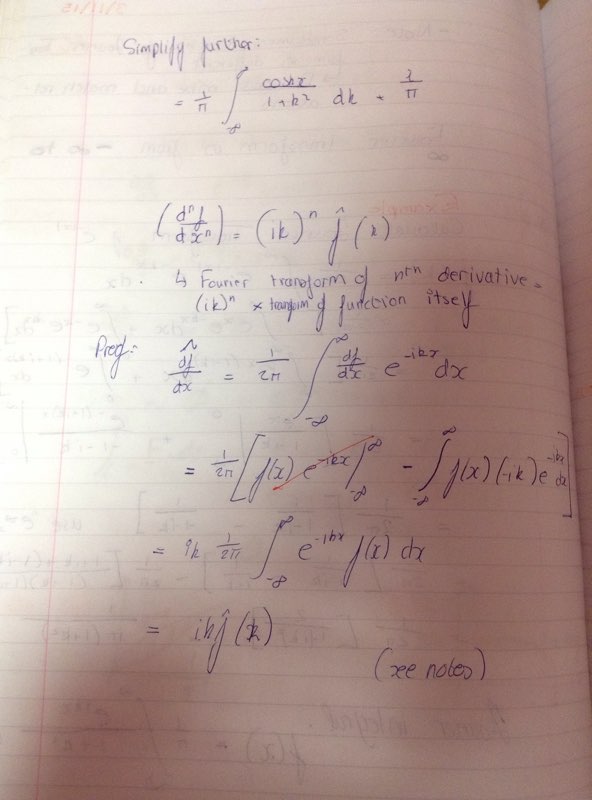 Simplify further:
= 1/π ∫_∞ coskx/(1+k²) dk
(dⁿf/dxⁿ) = (ik)ⁿ f̂(k)
↳ Fourier transform of nth derivative =
(ik)ⁿ × transform of function itself
Proof: d̂f/dx = 1/2π ∫_-∞^∞ df/dx e^-ikx dx
= 1/2π [f(x) e^-ikx |_-∞^∞ - ∫_-∞^∞ f(x) (-ik) e^-ikx dx]
= ik 1/2π ∫_-∞^∞ e^-ikx f(x) dx
= ik f̂(k)
(see notes)